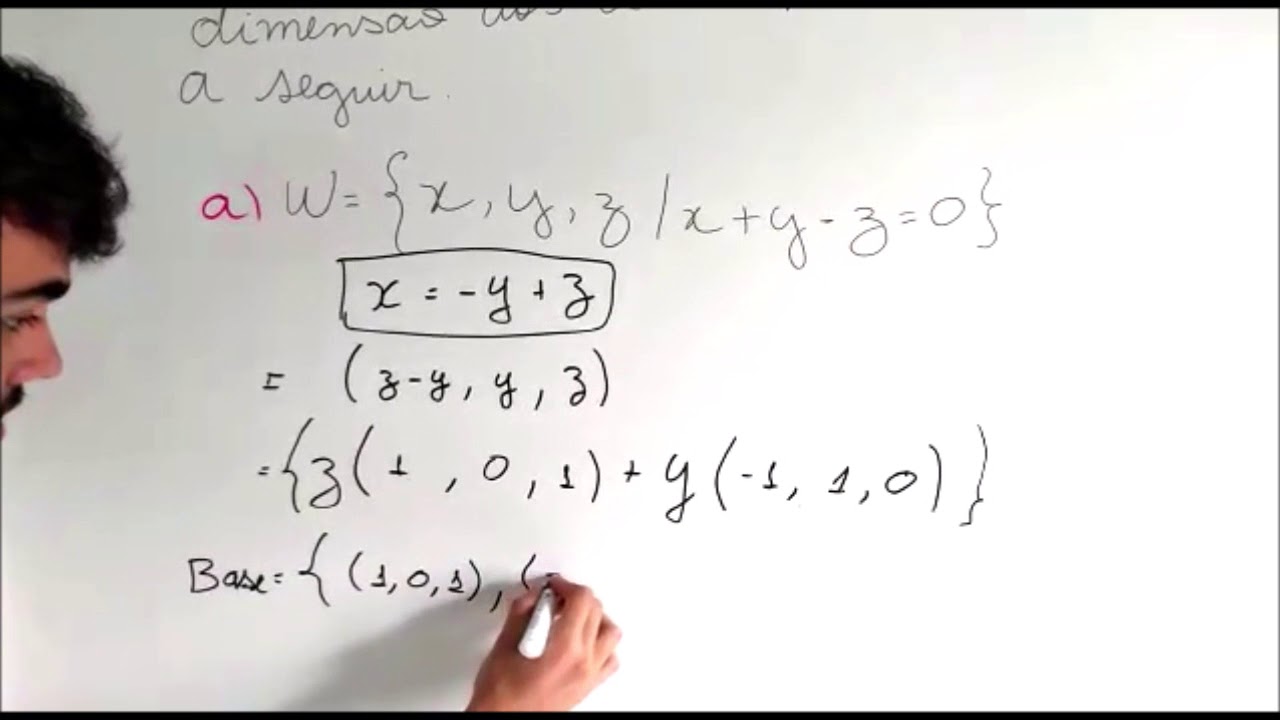 dimensão
a seguir.
a) W = {x, y, z / x + y - z = 0}
x = -y + z
= (z-y, y, z)
= {z(1, 0, 1) + y(-1, 1, 0)}
Base = { (1, 0, 1), (-